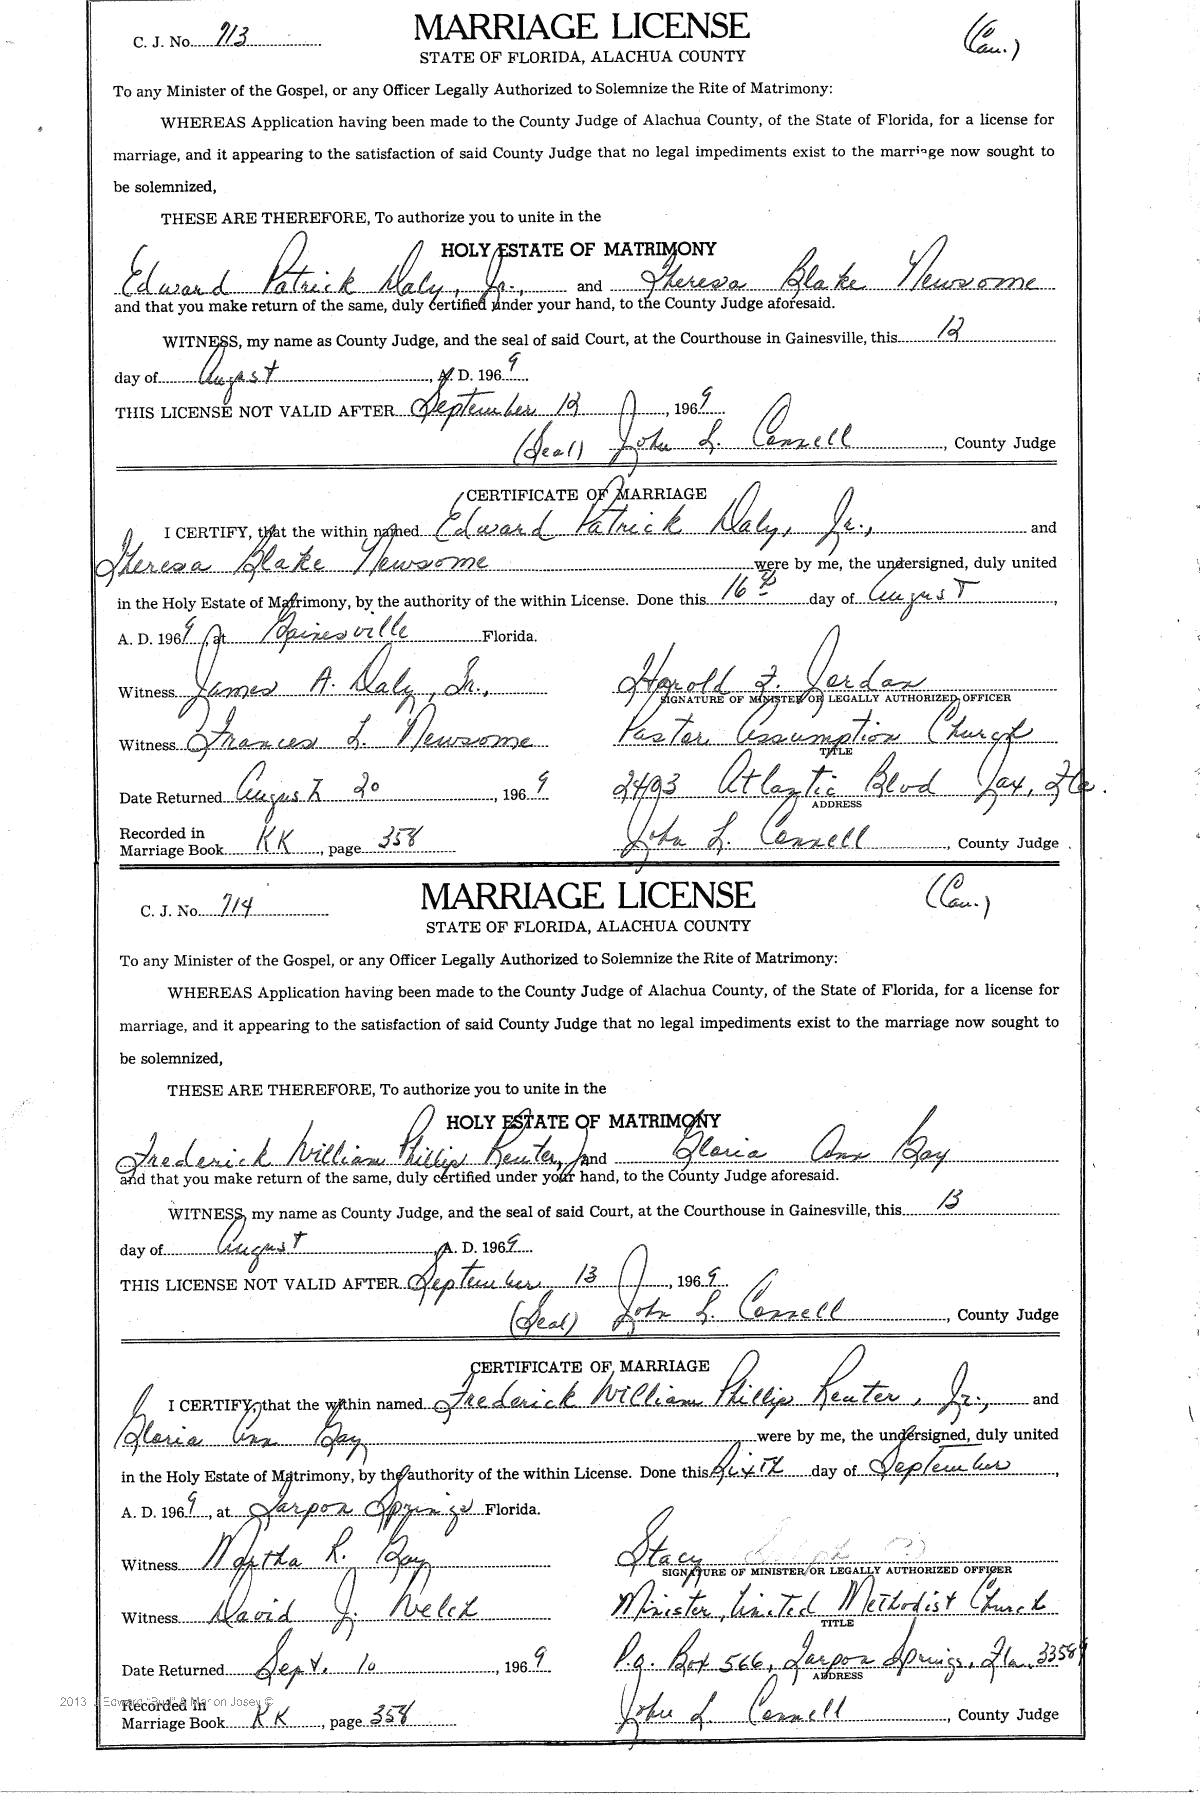 C. J. No. 713
MARRIAGE LICENSE
(Cau.)
STATE OF FLORIDA, ALACHUA COUNTY
To any Minister of the Gospel, or any Officer Legally Authorized to Solemnize the Rite of Matrimony:
WHEREAS Application having been made to the County Judge of Alachua County, of the State of Florida, for a license for
marriage, and it appearing to the satisfaction of said County Judge that no legal impediments exist to the marriage now sought to
be solemnized,
THESE ARE THEREFORE, To authorize you to unite in the
HOLY ESTATE OF MATRIMONY
Edward Patrick Daly, Jr., and Theresa Blake Newsome
and that you make return of the same, duly certified under your hand, to the County Judge aforesaid.
WITNESS, my name as County Judge, and the seal of said Court, at the Courthouse in Gainesville, this 12
day of August, A. D. 1969
THIS LICENSE NOT VALID AFTER September 12, 1969
(Seal) John L. Connell, County Judge
CERTIFICATE OF MARRIAGE
I CERTIFY, that the within named Edward Patrick Daly, Jr., and
Theresa Blake Newsome were by me, the undersigned, duly united
in the Holy Estate of Matrimony, by the authority of the within License. Done this 16th day of August,
A. D. 1969, at Gainesville Florida.
Witness James A. Daly, Sr., Harold F. Jordan
SIGNATURE OF MINISTER OR LEGALLY AUTHORIZED OFFICER
Witness Frances L. Newsome Pastor Assumption Church
TITLE
Date Returned August 20, 1969 2493 Atlantic Blvd Jax, Fla.
ADDRESS
Recorded in
Marriage Book KK, page 358 John L. Connell, County Judge
C. J. No. 714
MARRIAGE LICENSE
(Cau.)
STATE OF FLORIDA, ALACHUA COUNTY
To any Minister of the Gospel, or any Officer Legally Authorized to Solemnize the Rite of Matrimony:
WHEREAS Application having been made to the County Judge of Alachua County, of the State of Florida, for a license for
marriage, and it appearing to the satisfaction of said County Judge that no legal impediments exist to the marriage now sought to
be solemnized,
THESE ARE THEREFORE, To authorize you to unite in the
HOLY ESTATE OF MATRIMONY
Frederick William Phillip Reuter, Jr. and Gloria Ann Gay
and that you make return of the same, duly certified under your hand, to the County Judge aforesaid.
WITNESS, my name as County Judge, and the seal of said Court, at the Courthouse in Gainesville, this 13
day of August, A. D. 1969
THIS LICENSE NOT VALID AFTER September 13, 1969
(Seal) John L. Connell, County Judge
CERTIFICATE OF MARRIAGE
I CERTIFY, that the within named Frederick William Phillip Reuter, Jr., and
Gloria Ann Gay were by me, the undersigned, duly united
in the Holy Estate of Matrimony, by the authority of the within License. Done this Sixth day of September,
A. D. 1969, at Tarpon Springs Florida.
Witness Martha R. Gay Stacy
SIGNATURE OF MINISTER OR LEGALLY AUTHORIZED OFFICER
Witness David J. Welch Minister, United Methodist Church
TITLE
Date Returned Sept. 10, 1969 P.O. Box 566, Tarpon Springs, Fla. 33589
ADDRESS
2013 J Edward "Bud" & Marion Josey ©
Recorded in
Marriage Book KK, page 358 John L. Connell, County Judge